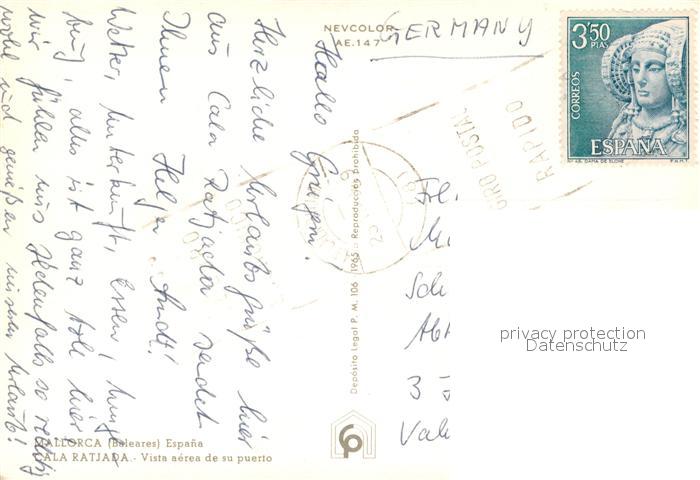 NEVCOLOR
AE.147
GERMANY
3'50
PTAS
CORREOS
ESPAÑA
Nº 48. DAMA DE ELCHE
F.N.M.T.
GIRO POSTAL
RAPIDO
Hallo Grüezi!
Herzliche Urlaubsgrüße hier
aus Cala Ratjada sendet
Ihnen Helga
Wetter, Unterkunft, Essen,
alles ist ganz toll hier,
wir fühlen uns jedenfalls so richtig
wohl und genießen unseren Urlaub!
Depósito Legal P. M. 106 1965 - Reproducción prohibida
privacy protection
Datenschutz
MALLORCA (Baleares) España
CALA RATJADA.- Vista aérea de su puerto